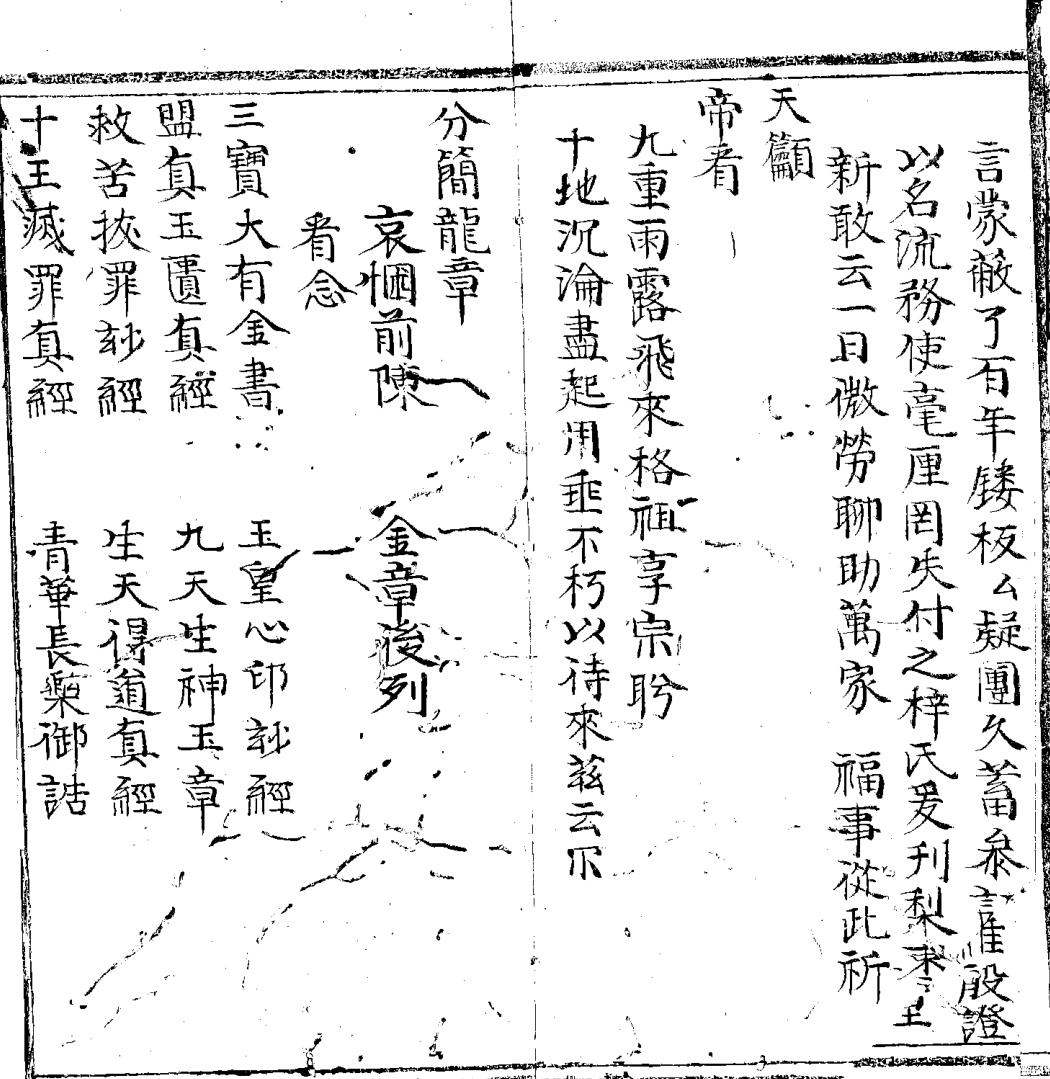 言蒙蔽了百年鋟板厶疑團久蓄叅讎般證
以名流務使毫厘罔失付之梓氏爰刊梨棗主
新敢云一日微勞聊助萬家　福事從此祈
天籲
帝眷
九重雨露飛來格祖享宗盻
十地沉淪盡起用垂不朽以待來茲云尔
分簡龍章
哀悃前陳　金章後列
眷念
三寶大有金書　玉皇心印玅經
盟真玉匱真經　九天生神玉章
救苦拔罪玅經　生天得道真經
十王滅罪真經　青華長樂御誥